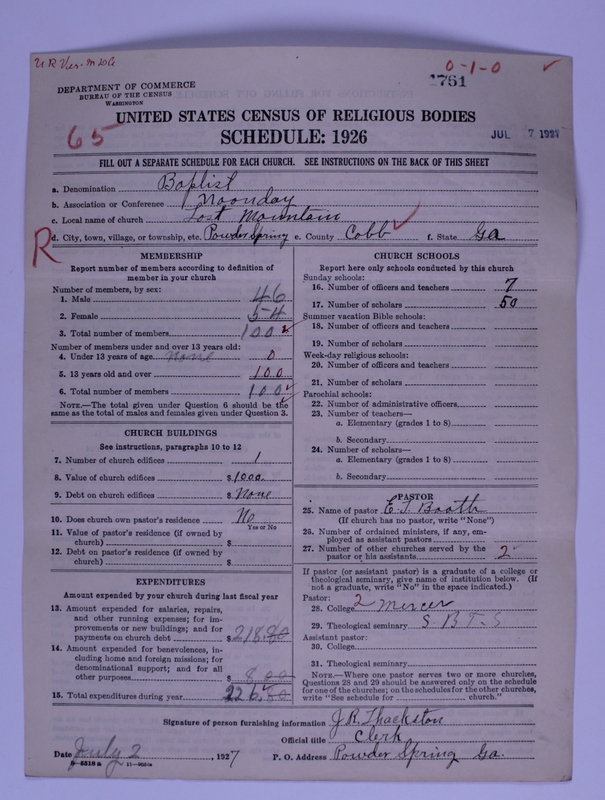 0-1-0
1761
DEPARTMENT OF COMMERCE
BUREAU OF THE CENSUS
WASHINGTON
UNITED STATES CENSUS OF RELIGIOUS BODIES
65
SCHEDULE: 1926
JUL 7 1927
FILL OUT A SEPARATE SCHEDULE FOR EACH CHURCH. SEE INSTRUCTIONS ON THE BACK OF THIS SHEET
a. Denomination Baptist
b. Association or Conference Noonday
c. Local name of church Lost Mountain
R d. City, town, village, or township, etc. Powder Spring e. County Cobb f. State Ga
MEMBERSHIP
Report number of members according to definition of
member in your church
Number of members, by sex:
1. Male 46
2. Female 54
3. Total number of members 100
Number of members under and over 13 years old:
4. Under 13 years of age None 0
5. 13 years old and over 100
6. Total number of members 100
NOTE.—The total given under Question 6 should be the
same as the total of males and females given under Question 3.
CHURCH BUILDINGS
See instructions, paragraphs 10 to 12
7. Number of church edifices 1
8. Value of church edifices $1000.
9. Debt on church edifices $None
10. Does church own pastor's residence No
Yes or No
11. Value of pastor's residence (if owned by
church) $
12. Debt on pastor's residence (if owned by
church) $
EXPENDITURES
Amount expended by your church during last fiscal year
13. Amount expended for salaries, repairs,
and other running expenses; for im-
provements or new buildings; and for
payments on church debt $218.80
14. Amount expended for benevolences, in-
cluding home and foreign missions; for
denominational support; and for all
other purposes $8.00
15. Total expenditures during year 226.80
CHURCH SCHOOLS
Report here only schools conducted by this church
Sunday schools:
16. Number of officers and teachers 7
17. Number of scholars 50
Summer vacation Bible schools:
18. Number of officers and teachers
19. Number of scholars
Week-day religious schools:
20. Number of officers and teachers
21. Number of scholars
Parochial schools:
22. Number of administrative officers
23. Number of teachers—
a. Elementary (grades 1 to 8)
b. Secondary
24. Number of scholars—
a. Elementary (grades 1 to 8)
b. Secondary
PASTOR
25. Name of pastor E. T. Booth
(If church has no pastor, write "None")
26. Number of ordained ministers, if any, em-
ployed as assistant pastors
27. Number of other churches served by the
pastor or his assistants 2
If pastor (or assistant pastor) is a graduate of a college or
theological seminary, give name of institution below. (If
not a graduate, write "No" in the space indicated.)
Pastor:
28. College 2 Mercer
29. Theological seminary S. B T. S
Assistant pastor:
30. College
31. Theological seminary
NOTE.—Where one pastor serves two or more churches,
Questions 28 and 29 should be answered only on the schedule
for one of the churches; on the schedules for the other churches,
write "See schedule for church."
Signature of person furnishing information J. R. Thackston
Official title Clerk
Date July 2, 1927 P. O. Address Powder Spring Ga.